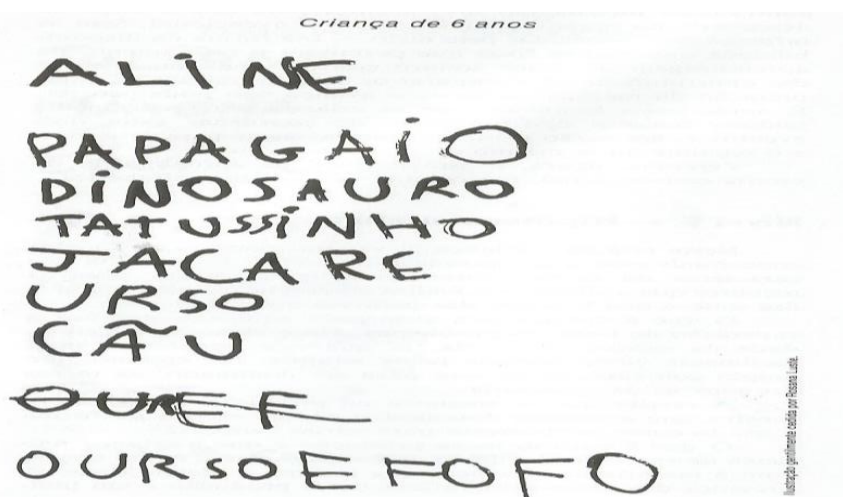 Criança de 6 anos
ALiNE
PAPAGAiO
DiNOSAURO
TATUSSiNHO
JACARE
URSO
CÃU
OUREF
OURSO E FOFO
ilustração gentilmente cedida por Rosana Luste.